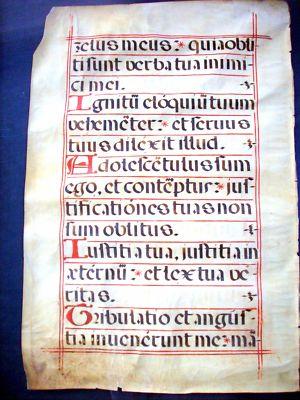 zelus meus: * quia obli
ti sunt verba tua inimi
ci mei.
Ignitū elóquiū tuum
vehemēter: * et servus
tuus dilexit illud.
Adolescētulus sum
ego, et contēptꝰ: * jus-
tificatiónes tuas non
sum oblitus.
Justitia tua, justitia in
æternū: * et lex tua ve
ritas.
Tribulatio et angūs-
tia invenérunt me: * mā